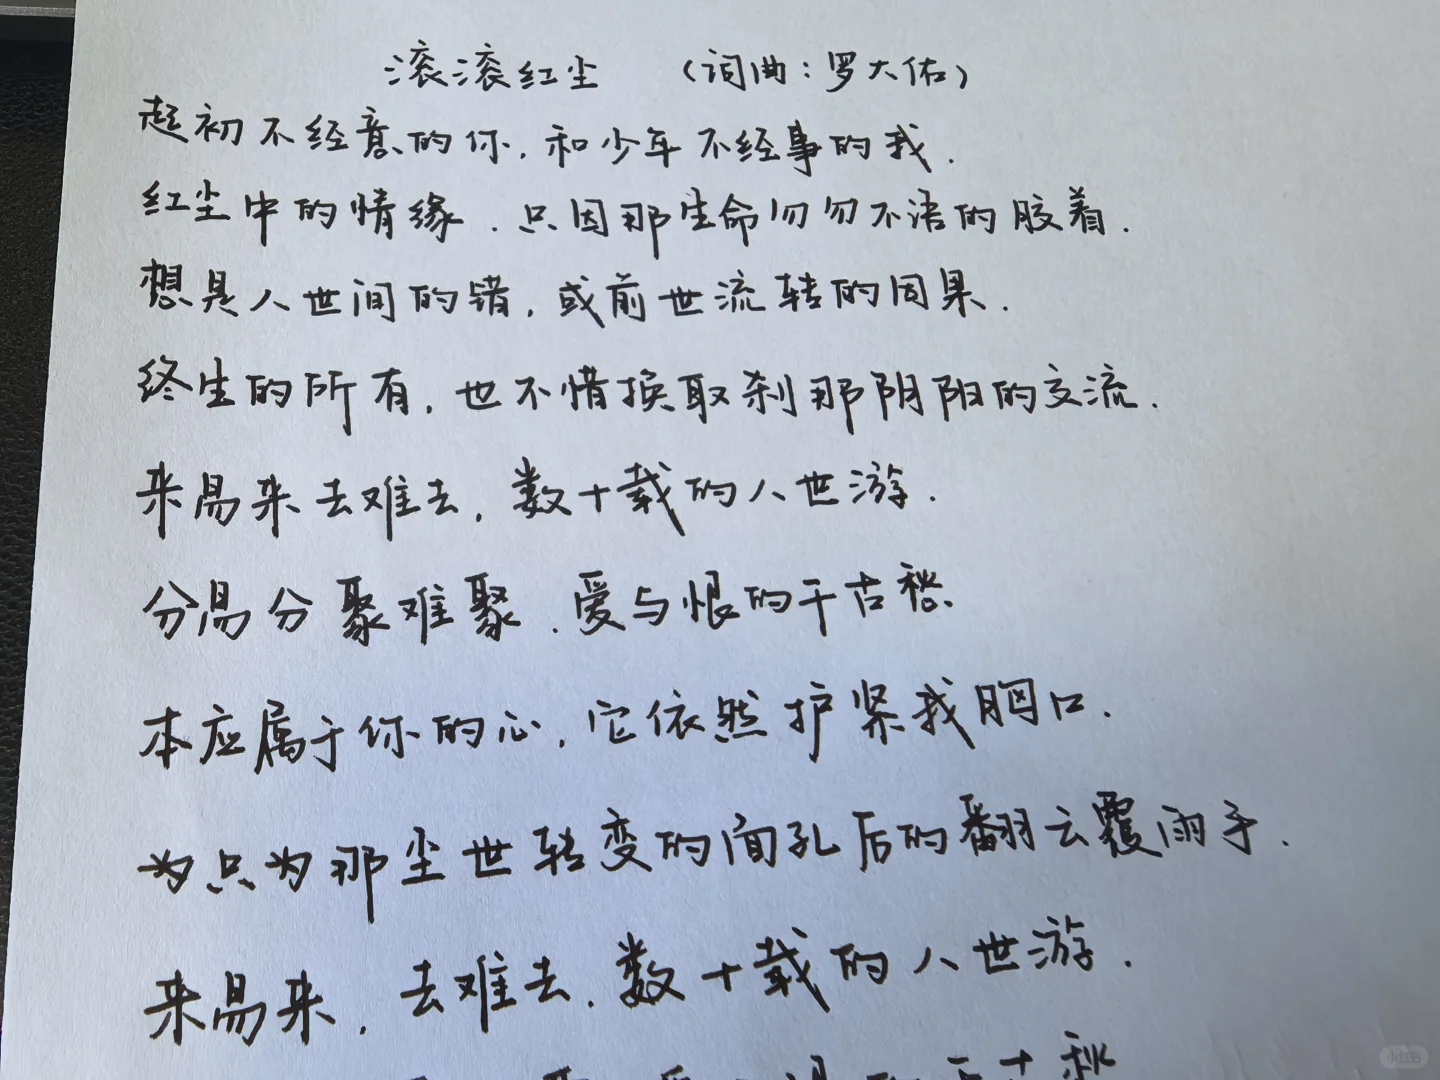 滚滚红尘 （词曲：罗大佑）
起初不经意的你，和少年不经事的我．
红尘中的情缘．只因那生命匆匆不语的胶着．
想是人世间的错，或前世流转的因果．
终生的所有，也不惜换取刹那阴阳的交流．
来易来去难去，数十载的人世游．
分易分聚难聚．爱与恨的千古愁
本应属于你的心，它依然护紧我胸口．
为只为那尘世转变的面孔后的翻云覆雨手．
来易来，去难去．数十载的人世游．
小红书